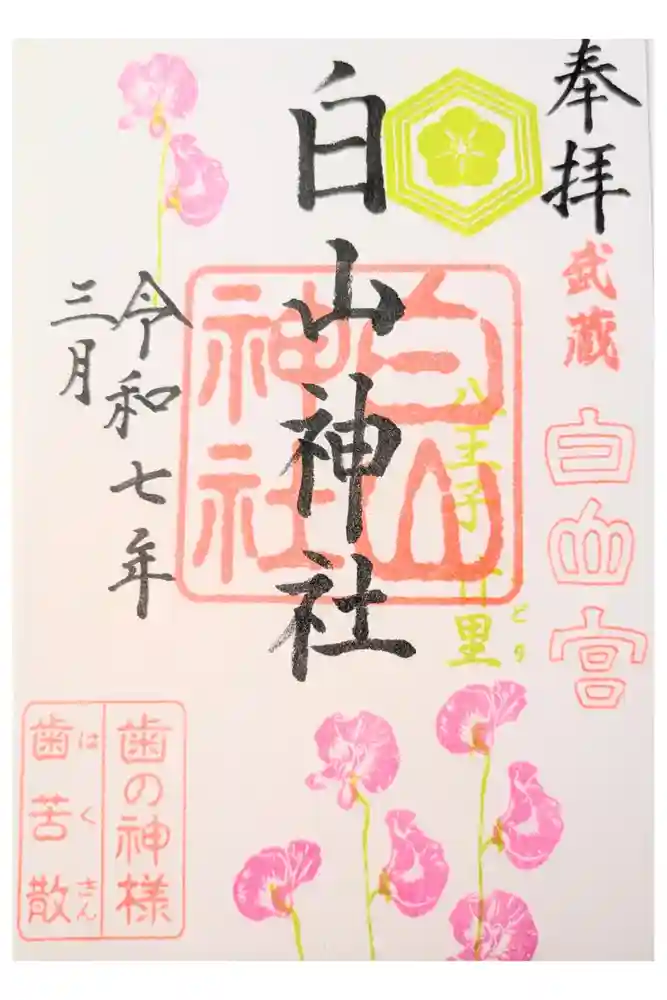 奉拝
武蔵
白山宮
八王子 廿里
とどり
白山神社
白山
神社
令和七年
三月
歯の神様
はくさん
歯苦散